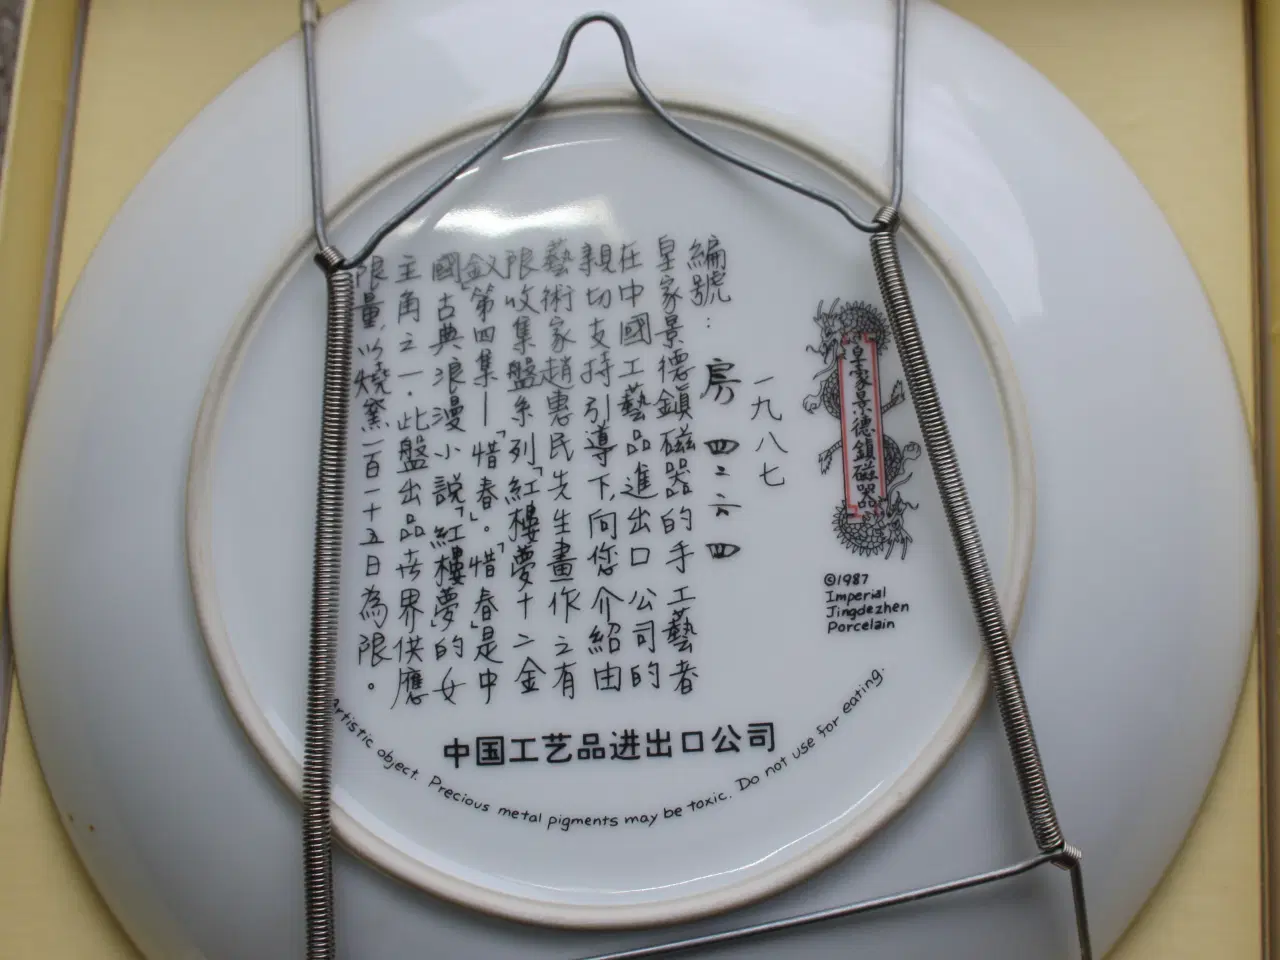 皇家景德鎮磁器
©1987
Imperial
Jingdezhen
Porcelain
一九八七
編號：房四二六四
皇家景德鎮磁器的手工藝者
在中國工藝品進出口公司的
親切支持引導下,向您介紹由
藝術家趙惠民先生畫作之有
限收集盤系列「紅樓夢十二金
釵」第四集—「惜春」。「惜春」是中
國古典浪漫小說「紅樓夢」的女
主角之一．此盤出品世界供應
限量,以燒窯一百一十五日為限。
中国工艺品进出口公司
Artistic object. Precious metal pigments may be toxic. Do not use for eating.